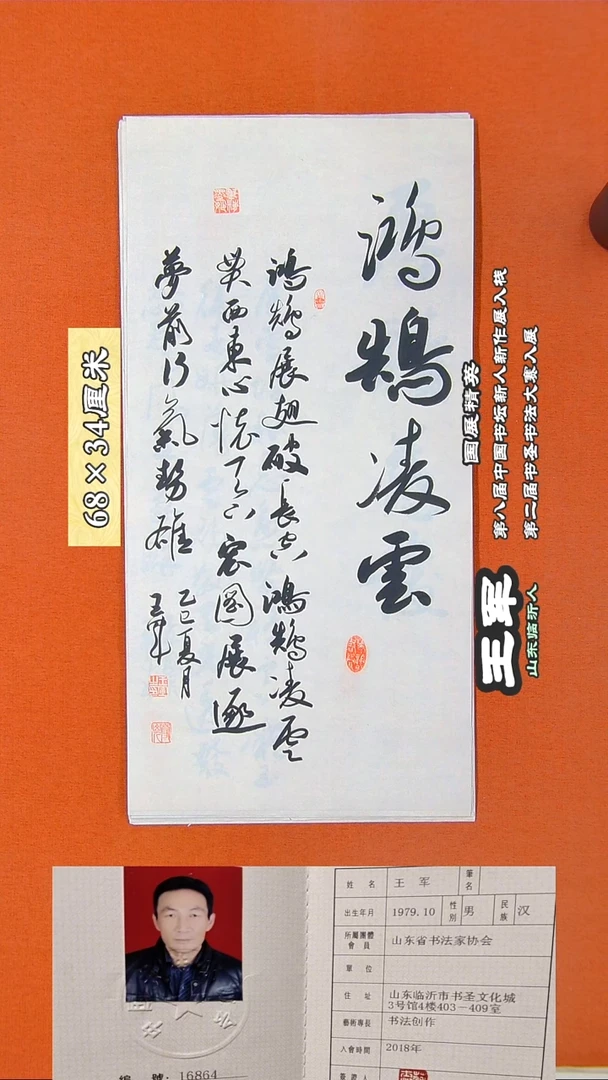 鴻鵠凌雲
鴻鵠展翅破長空鴻鵠凌雲
貫西東心懷天下宏圖展逐
夢前行氣勢雄
乙巳夏月
王军
68×34厘米
国展精英
第八届中国书坛新人新作展入展
第二届书圣书法大赛入展
王军
山东临沂人
姓名 王军 筆名
出生年月 1979.10 性別 男 民族 汉
所屬團體會員 山东省书法家协会
單位
住址 山东临沂市书圣文化城
3号馆4楼403-409室
藝術專長 书法创作
入會時間 2018年
簽證人
編號:16864